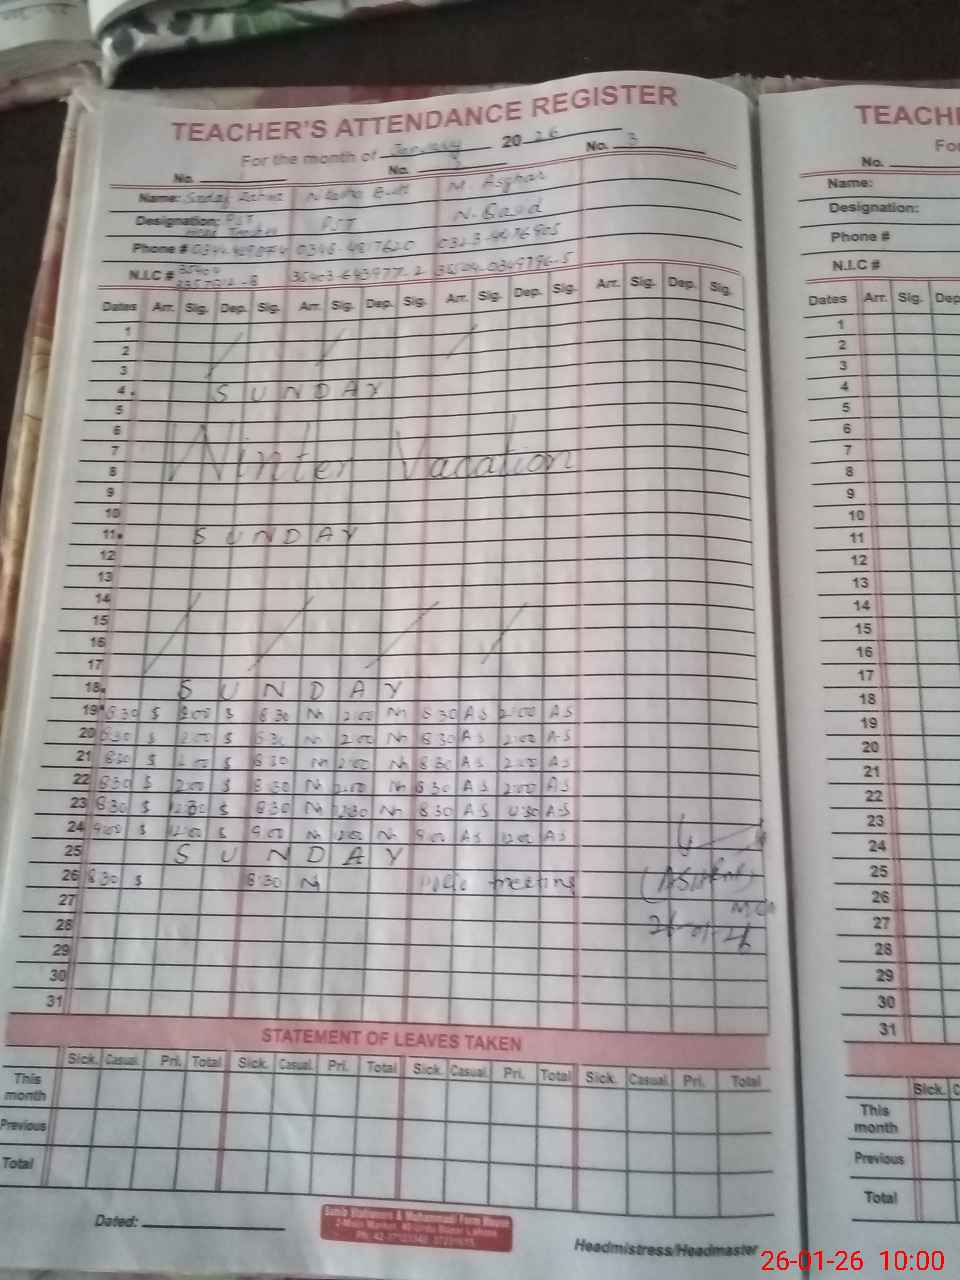 TEACHER'S ATTENDANCE REGISTER
For the month of January 2026
No. No. No. 3
Name: Sadaf M. Asghar
Designation: PST PST N. Qasid
Head Teacher
Phone #
N.I.C #
Dates Arr. Sig. Dep. Sig. Arr. Sig. Dep. Sig. Arr. Sig. Dep. Sig. Arr. Sig. Dep. Sig.
1
2
3
4. SUNDAY
5
6
7
8 Winter Vacation
9
10
11. SUNDAY
12
13
14
15
16
17
18. SUNDAY
19 8 30 S 2 00 S 8 30 N 2 00 N 8 30 AS 2 00 AS
20 8 30 S 2 00 S 8 30 N 2 00 N 8 30 AS 2 00 AS
21 8 30 S 2 00 S 8 30 N 2 00 N 8 30 AS 2 00 AS
22 8 30 S 2 00 S 8 30 N 2 00 N 8 30 AS 2 00 AS
23 8 30 S 12 30 S 8 30 N 12 30 N 8 30 AS 12 30 AS
24 9 00 S 12 00 S 9 00 N 12 00 N 9 00 AS 12 00 AS
25 SUNDAY
26 8 30 S 8 30 N Polio meeting
27 26-01-26
28
29
30
31
STATEMENT OF LEAVES TAKEN
Sick. Casual. Pri. Total Sick. Casual. Pri. Total Sick. Casual. Pri. Total Sick. Casual. Pri. Total
This month
Previous
Total
Dated:
Headmistress/Headmaster
TEACH
Fo
No.
Name:
Designation:
Phone #
N.I.C #
Dates Arr. Sig. Dep
1
2
3
4
5
6
7
8
9
10
11
12
13
14
15
16
17
18
19
20
21
22
23
24
25
26
27
28
29
30
31
Sick. C
This month
Previous
Total
26-01-26 10:00